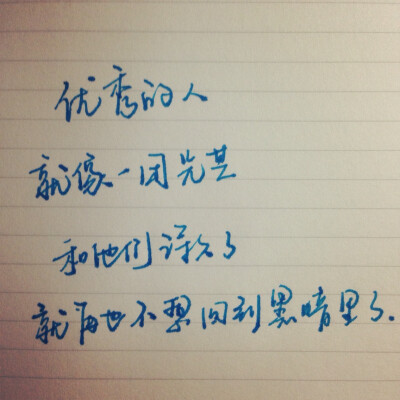 优秀的人
就像一团光芒
和他们待久了
就再也不想回到黑暗里了.